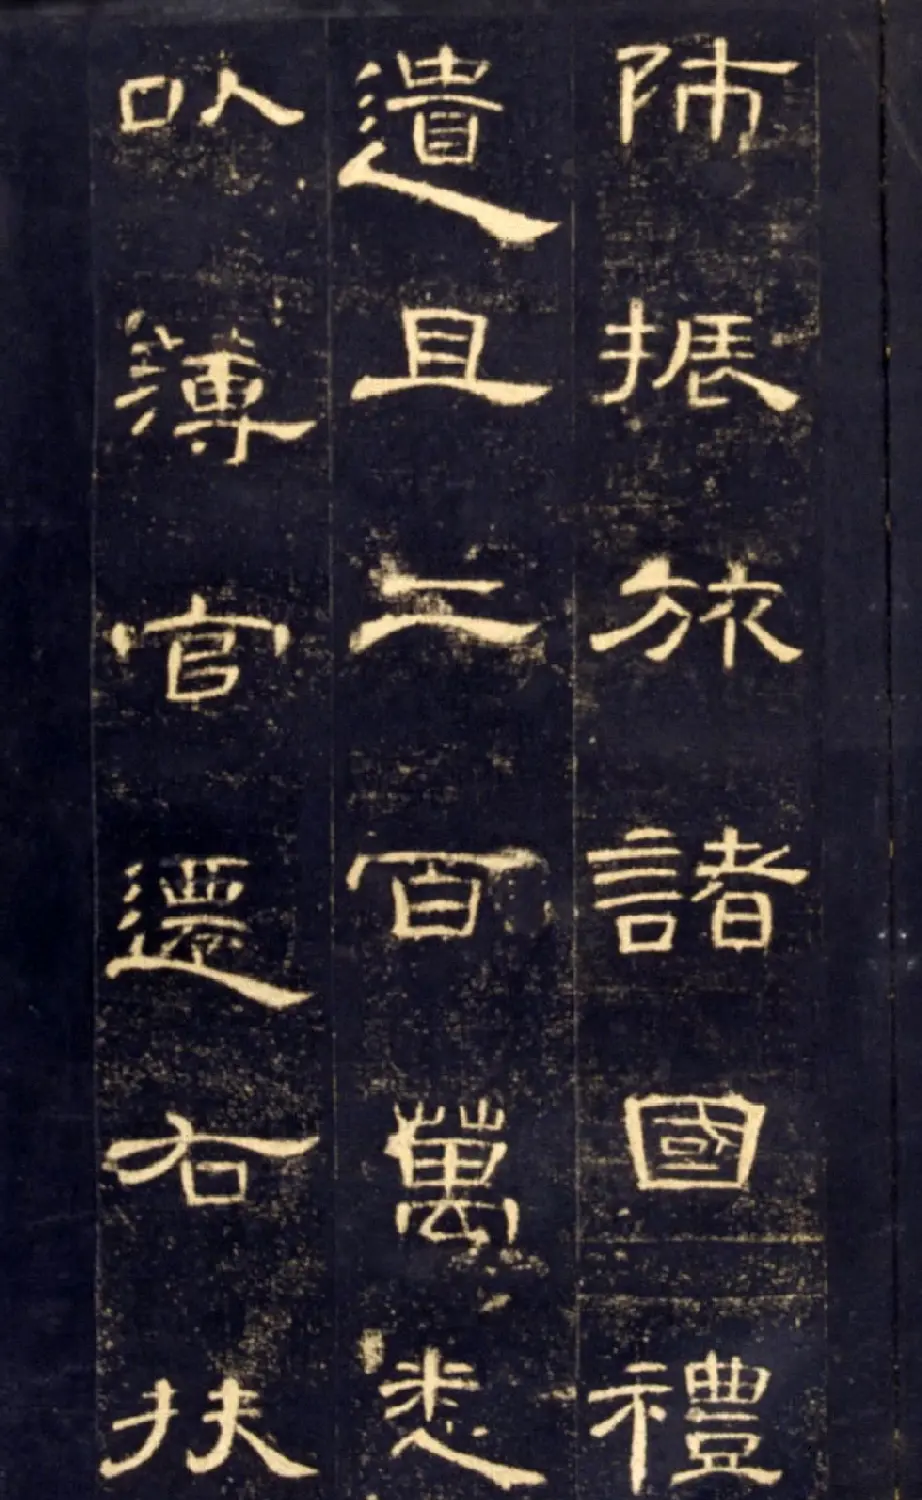 師振旅諸國禮
遺且二百萬悉
以薄官遷右扶